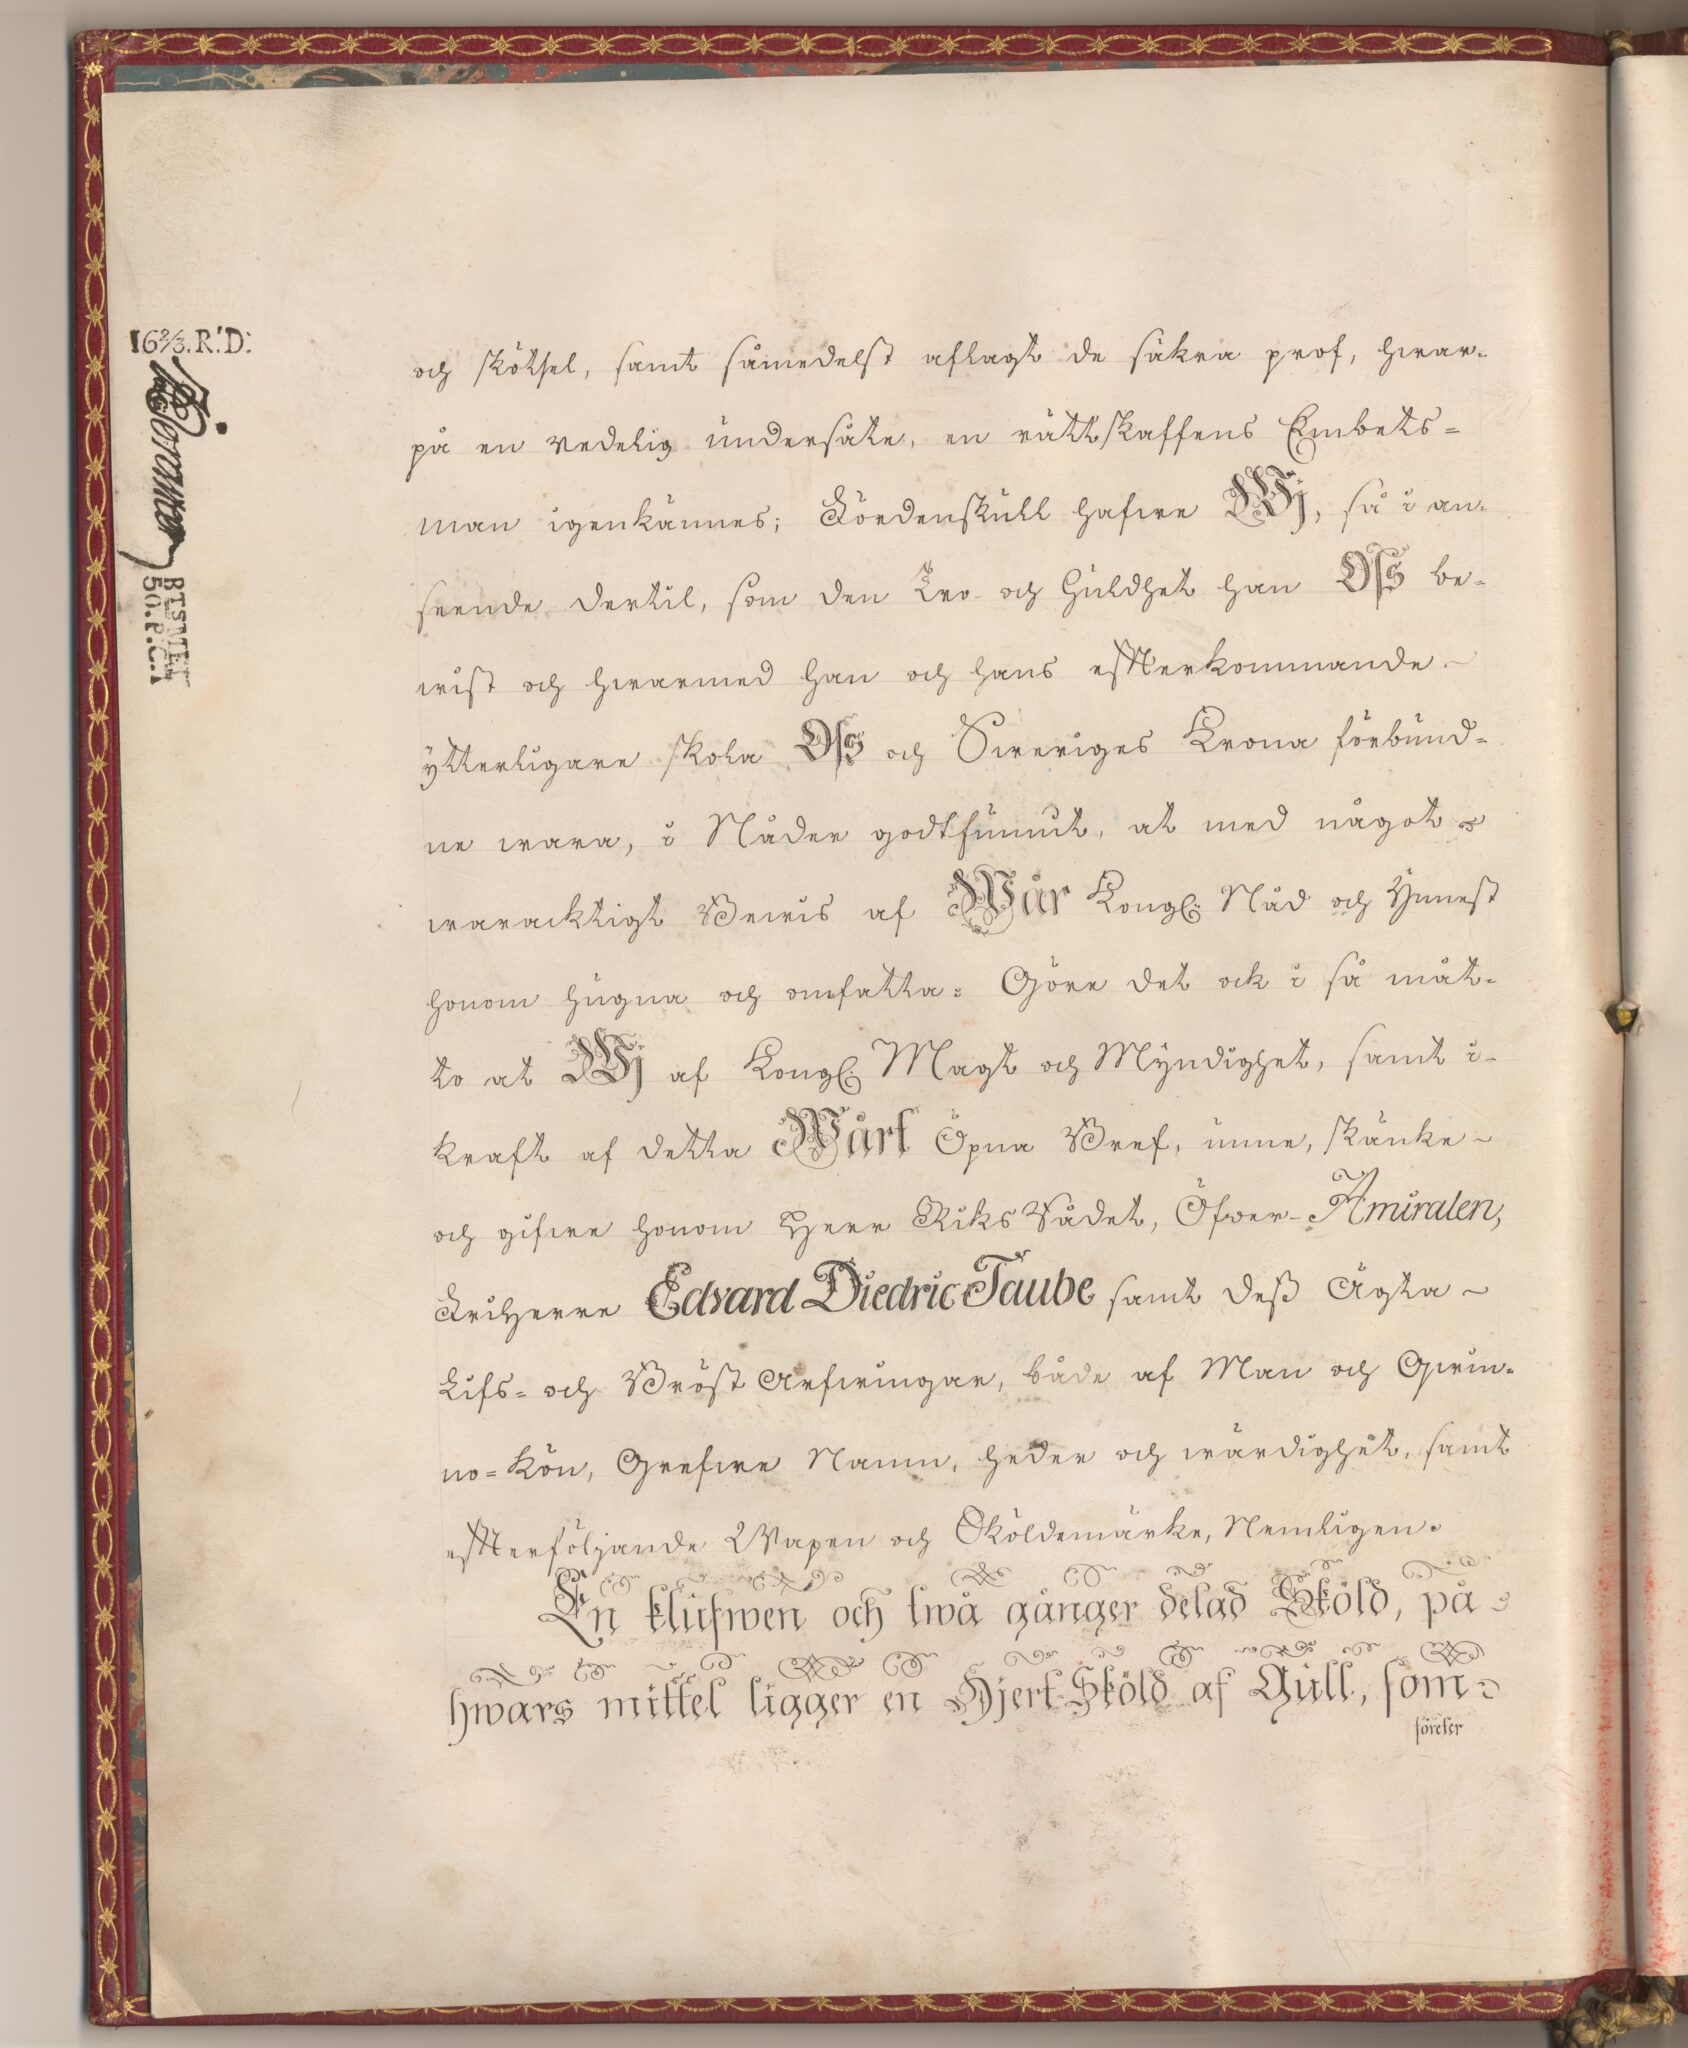 16 2/3. R:D:
BTSMEL
50. P.C.T
och skötsel, samt såmedelst aflagt de säkra prof, hwar-
på en redelig undersåte, en rättskaffens Embets-
man igenkännes; Fördenskull hafwe Wij, så i an-
seende dertil, som den Tro- och Huldhet han Oss be-
wist och hwarmed han och hans efterkommande
ytterligare skola Oss och Sweriges Krona förbund-
ne wara, i Nåder godtfunnit, at med något
waracktigt Bewis af Wår Kongl: Nåd och Ynnest
honom hugna och omfatta: Göre det ock i så måt-
to at Wij af Kongl: Magt och Myndighet, samt i
kraft af detta Wårt Öpna Bref, unne, skänke
och gifwe honom Herr RiksRådet, Öfwer-Amiralen,
FriHerre Edvard Diedric Taube samt deß Ägta
Lifs- och Bröst Arfwingar, både af Man och Qwin-
no-Kön, Grefwe Namn, heder och wärdighet, samt
efterföljande Wapen och Sköldemärke, Nemligen.
En klufwen och twå gånger delad Sköld, på
hwars mittel ligger en Hjert-Sköld af Gull, som
föreser